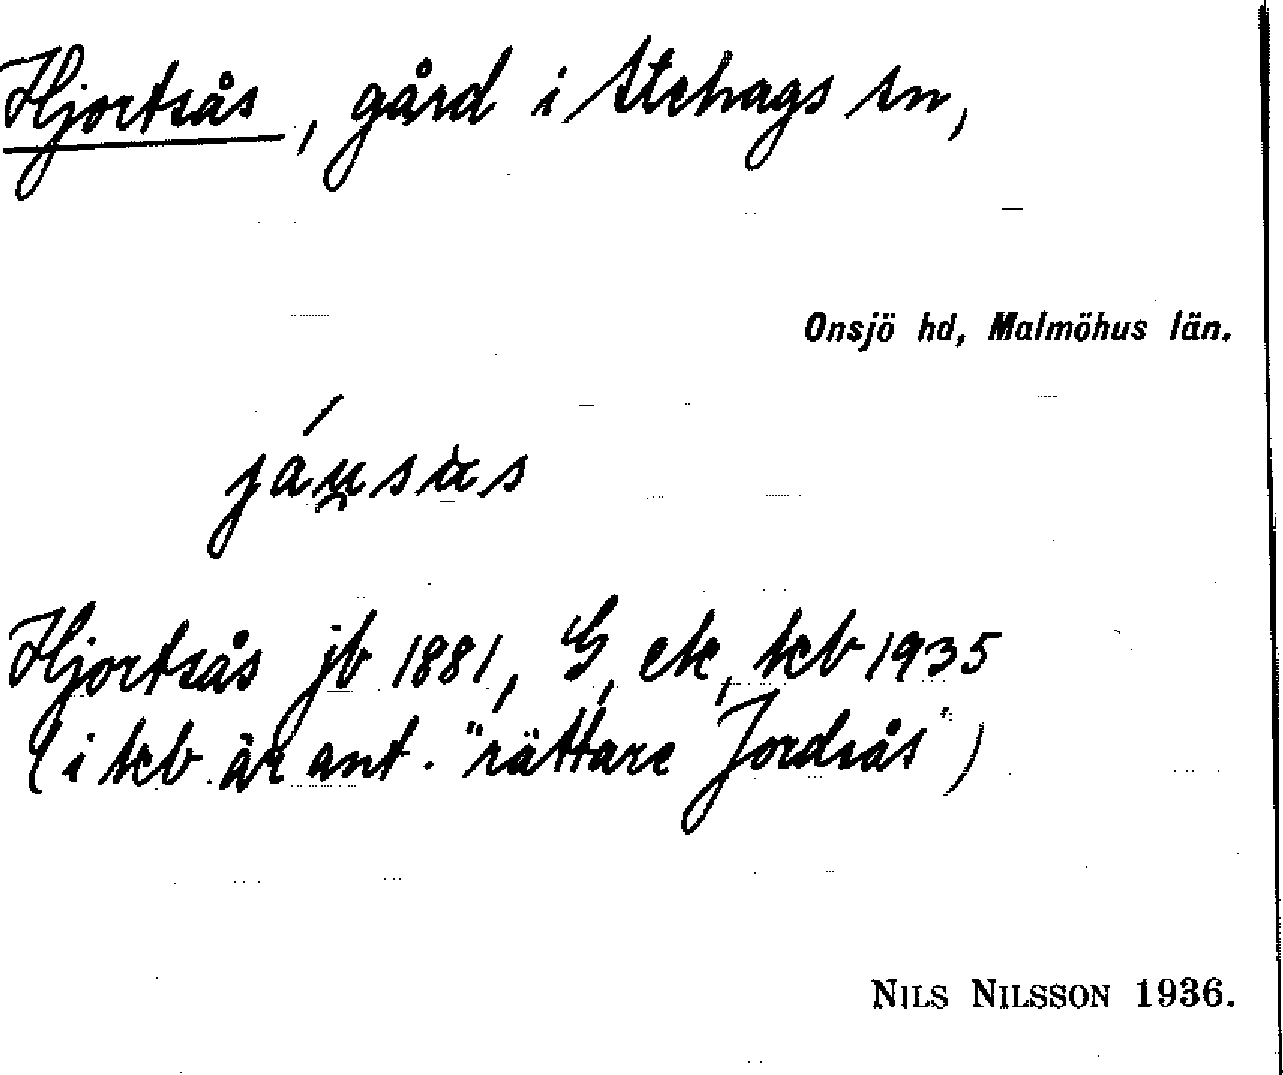 Hjortsås, gård i Stehags sn,
Onsjö hd, Malmöhus län.
Hjortsås jb 1881, G, ek, tcb 1935
(i tcb är ant. "rättare Jordsås")
NILS NILSSON 1936.